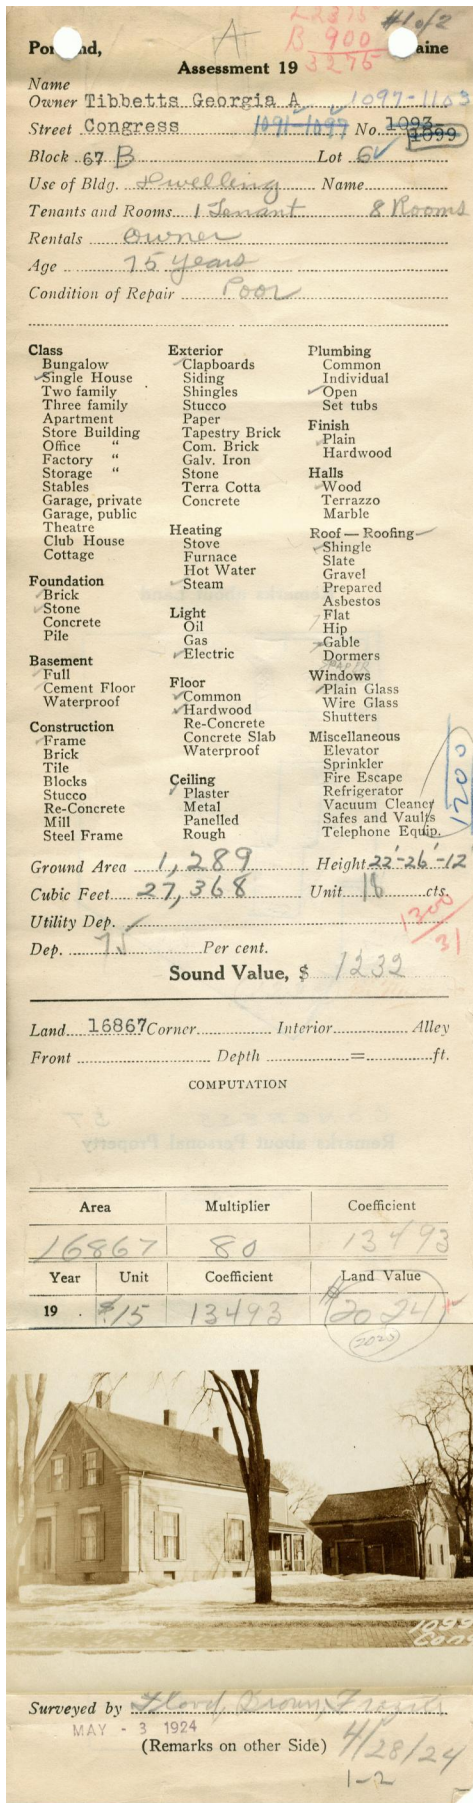 L 2375 #1 of 2
A B 900
Portland, Maine
3275
Assessment 19
Name
Owner Tibbetts Georgia A 1097-1103
Street Congress 1091-1097 No. 1093
1099
Block 67 B Lot 6
Use of Bldg. Dwelling Name
Tenants and Rooms 1 Tenant 8 Rooms
Rentals Owner
Age 75 years
Condition of Repair Poor
Class
Bungalow
Single House
Two family
Three family
Apartment
Store Building
Office "
Factory "
Storage "
Stables
Garage, private
Garage, public
Theatre
Club House
Cottage
Foundation
Brick
Stone
Concrete
Pile
Basement
Full
Cement Floor
Waterproof
Construction
Frame
Brick
Tile
Blocks
Stucco
Re-Concrete
Mill
Steel Frame
Exterior
Clapboards
Siding
Shingles
Stucco
Paper
Tapestry Brick
Com. Brick
Galv. Iron
Stone
Terra Cotta
Concrete
Heating
Stove
Furnace
Hot Water
Steam
Light
Oil
Gas
Electric
Floor
Common
Hardwood
Re-Concrete
Concrete Slab
Waterproof
Ceiling
Plaster
Metal
Panelled
Rough
Plumbing
Common
Individual
Open
Set tubs
Finish
Plain
Hardwood
Halls
Wood
Terrazzo
Marble
Roof — Roofing
Shingle
Slate
Gravel
Prepared
Asbestos
Flat
Hip
Gable
Dormers
Windows
Plain Glass
Wire Glass
Shutters
Miscellaneous
Elevator
Sprinkler
Fire Escape
Refrigerator
Vacuum Cleaner
Safes and Vaults
Telephone Equip.
1200
Ground Area 1,289 Height 22'-26'-12'
Cubic Feet 27,368 Unit 18 cts.
Utility Dep. 1200
31
Dep. 75 Per cent.
Sound Value, $ 1232
Land 16867 Corner Interior Alley
Front Depth = ft.
COMPUTATION
Area Multiplier Coefficient
16867 80 13493
Year Unit Coefficient Land Value
19 $.15 13493 $2024
2025
1099
Con
Surveyed by Flood, Brown,
MAY - 3 1924
(Remarks on other Side) 4/28/24
1-2